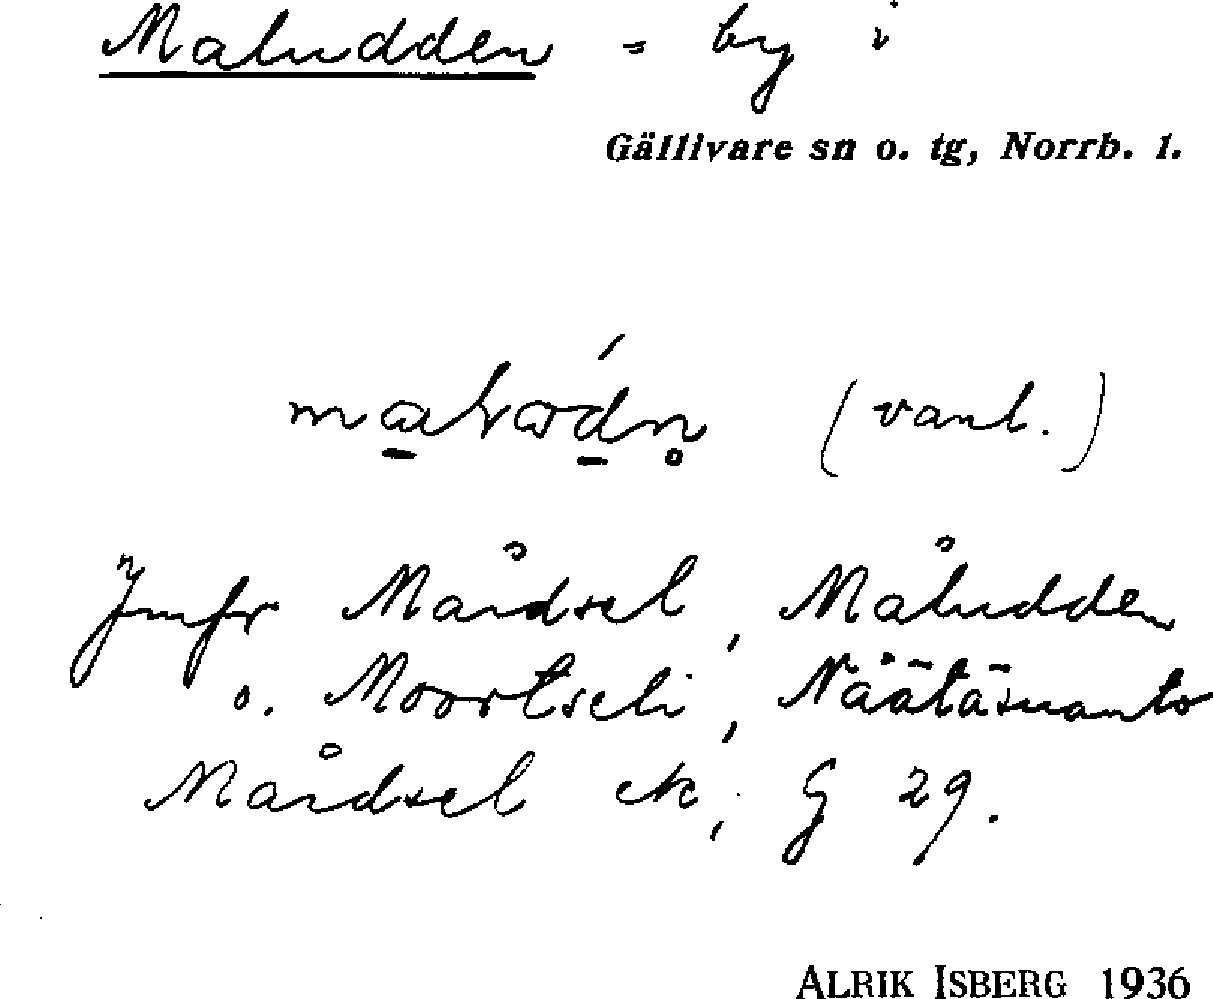 Maludden = by i
Gällivare sn o. tg, Norrb. l.
(vanl.)
Jmfr Mårdsel, Måludden
o. Moortseli, Näätäsuanto
Mårdsel ek, G 29.
ALRIK ISBERG 1936